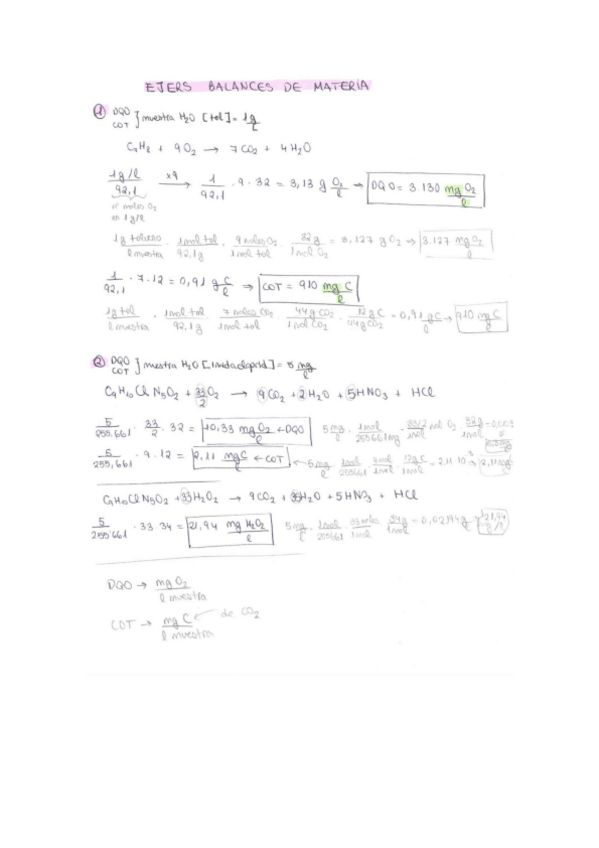 EJERS BALANCES DE MATERIA
1 DQO COT } muestra H2O [tol] = 1 g/l
C7H8 + 9O2 → 7CO2 + 4H2O
1 g/l / 92,1 ×9 → 1/92,1 · 9 · 32 = 3,13 g O2/l → DQO = 3.130 mg O2/l
nº moles O2 en 1 g/l
1g tolueno/l muestra · 1mol tol/92,1g · 9 moles O2/1mol tol · 32g/1mol O2 = 3,127 g O2 ⇒ 3.127 mg O2/l
1/92,1 · 7 · 12 = 0,91 g C/l ⇒ COT = 910 mg C/l
1g tol/l muestra · 1mol tol/92,1g · 7 moles CO2/1mol tol · 44g CO2/1mol CO2 · 12g C/44g CO2 = 0,91 g C/l → 910 mg C/l
2 DQO COT } muestra H2O [imidacloprid] = 5 mg/l
C9H10ClN5O2 + 33/2 O2 → 9CO2 + 2H2O + 5HNO3 + HCl
5/255,661 · 33/2 · 32 = 10,33 mg O2/l ← DQO 5 mg/l · 1mol/255661mg · 33/2 mol O2/1mol · 32g/1mol
5/255,661 · 9 · 12 = 2,11 mg C/l ← COT ← 5 mg/l · 1mol/255661 · 12g C/1mol = 2,11·10⁻³ → 2,11 mg/l
C9H10ClN5O2 + 33H2O2 → 9CO2 + 35H2O + 5HNO3 + HCl
5/255'661 · 33·34 = 21,94 mg H2O2/l 5 mg/l · 1mol/255661 · 33 moles/1mol · 34g/1mol = 0,02194 g/l → 21,94
DQO → mg O2/l muestra
COT → mg C/l muestra ← de CO2